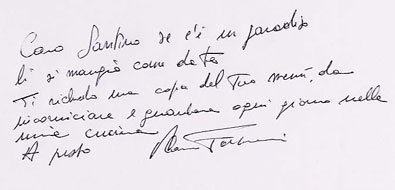 Caro Santino se c'è un paradiso
lì si mangia come da te
Ti richiedo una copia del tuo menù, da
incorniciare e guardare ogni giorno nella
mia cucina
A presto